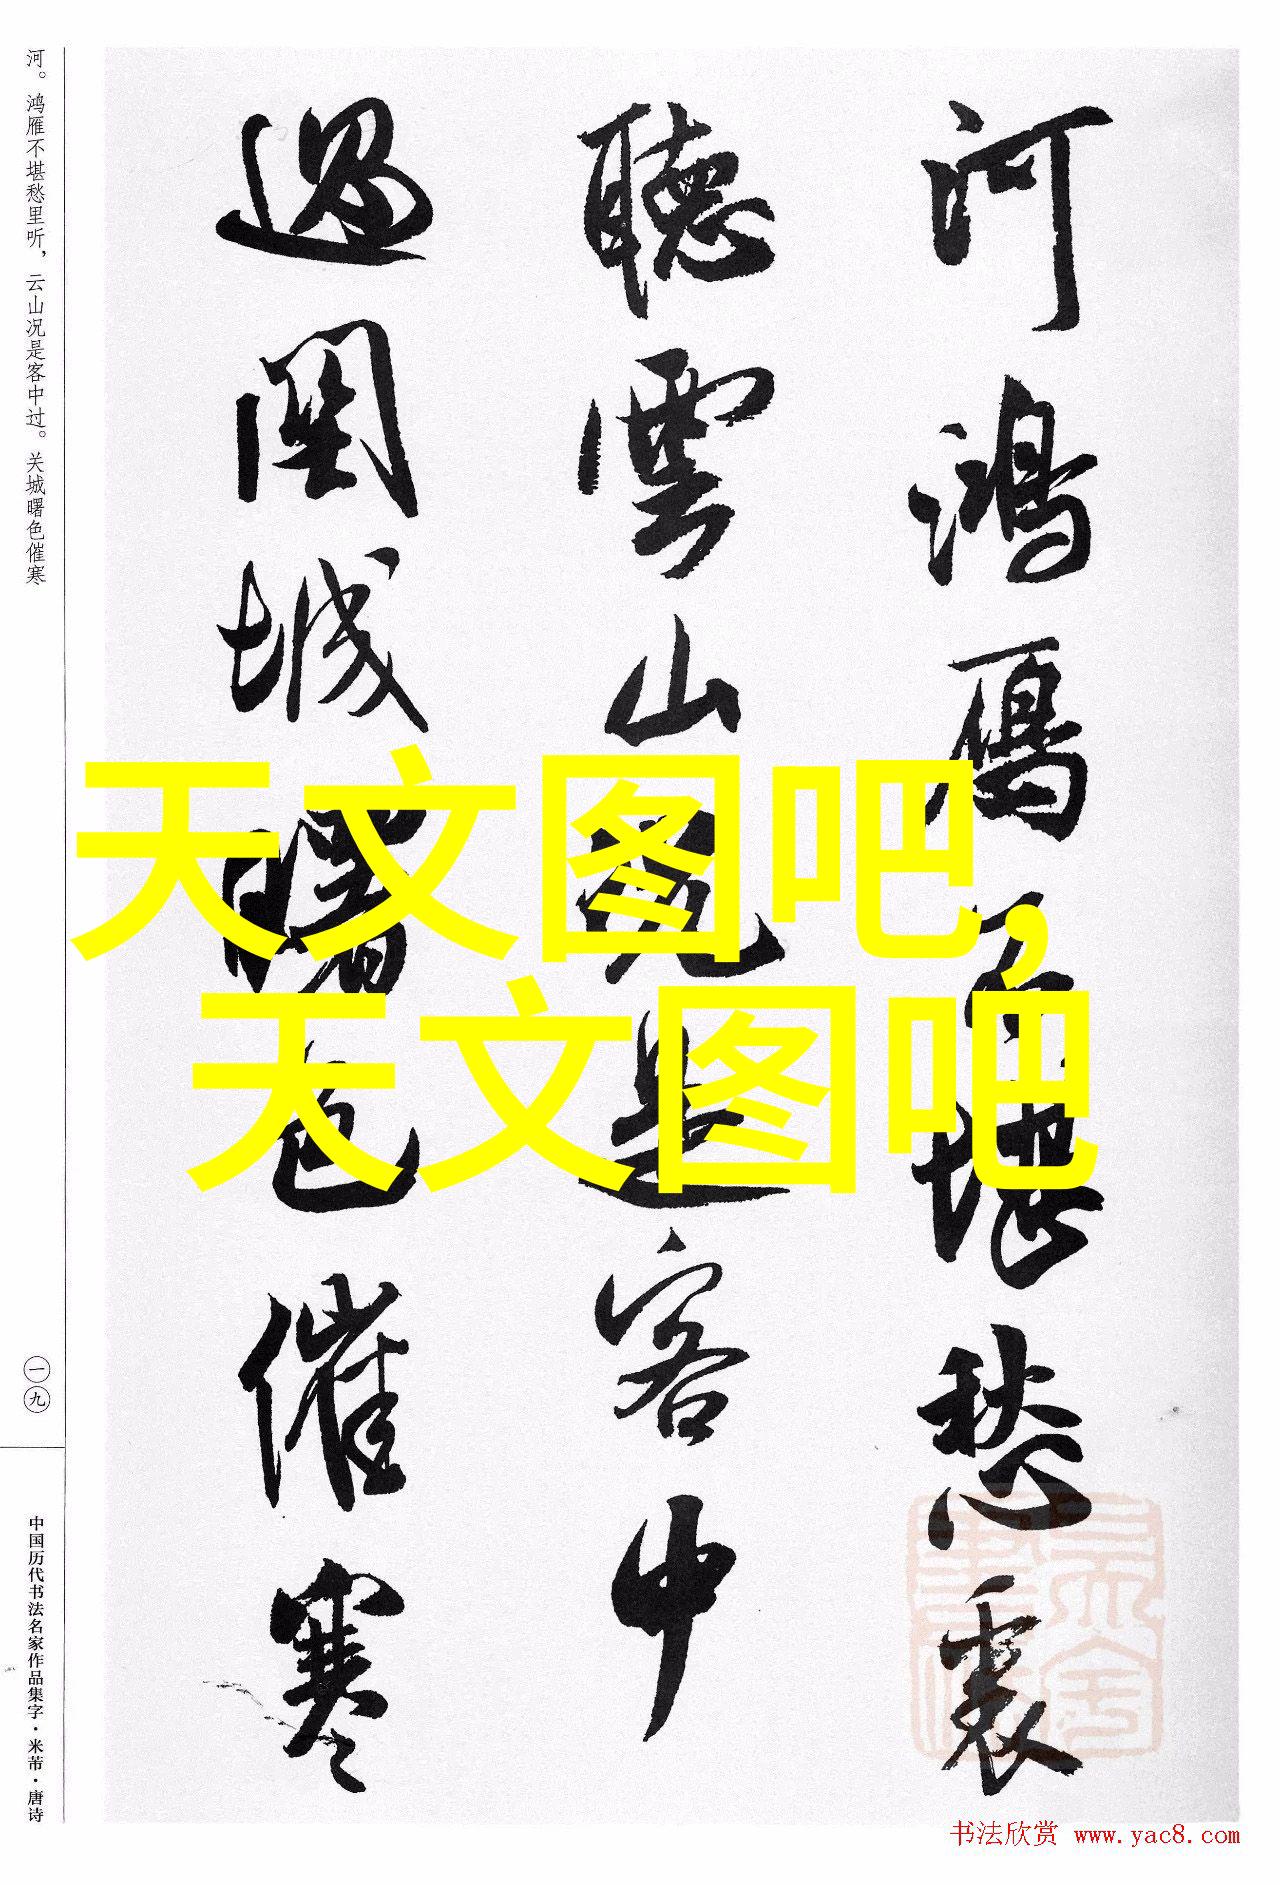 河鴻鴈不堪愁裏
聽雲山況是客中
過關城曙色催寒
河。鸿雁不堪愁里听，云山况是客中过。关城曙色催寒
一九
中国历代书法名家作品集字·米芾·唐诗
天文图吧，
天文图吧
书法欣赏 www.yac8.com